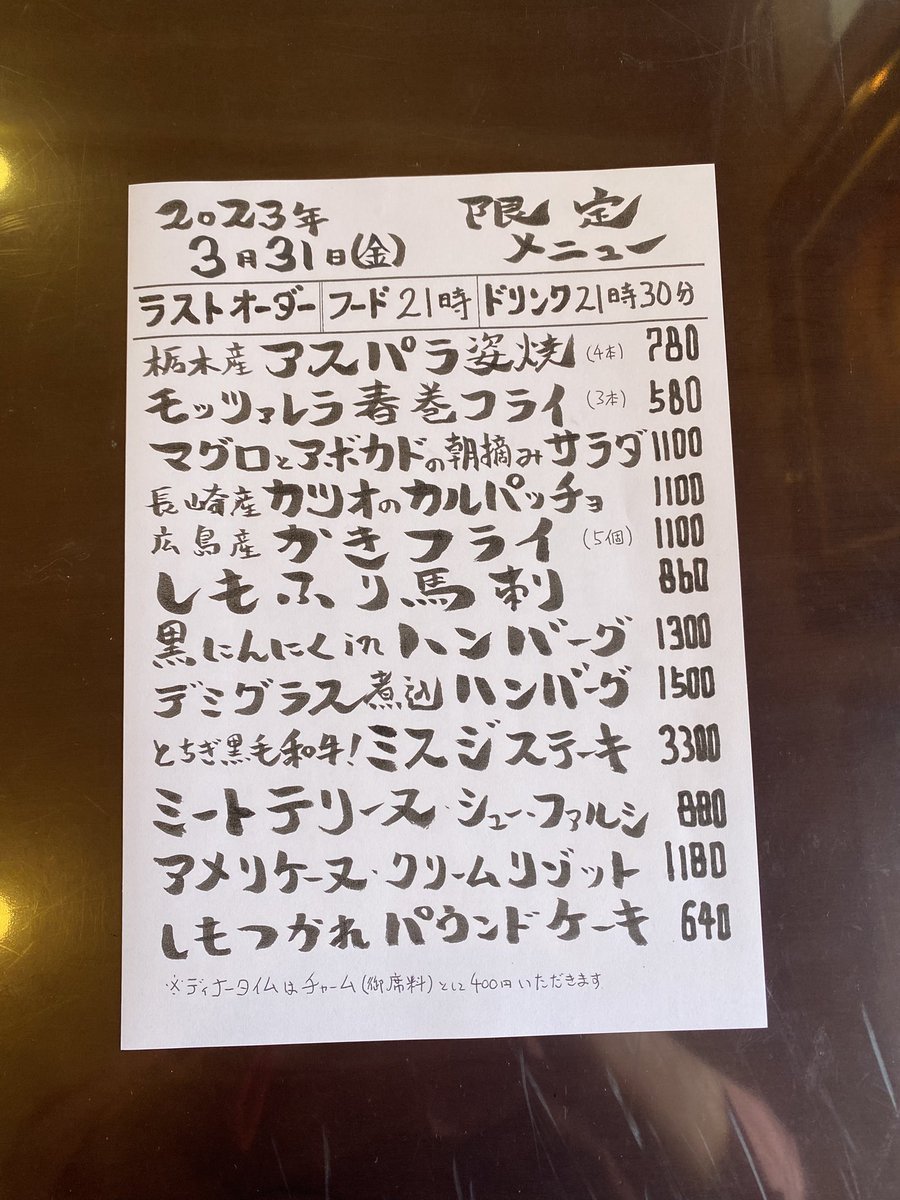 2023年 限定
3月31日(金) メニュー
ラストオーダー フード21時 ドリンク21時30分
栃木産 アスパラ姿焼 (4本) 780
モッツァレラ春巻フライ (3本) 580
マグロとアボカドの朝摘みサラダ 1100
長崎産 カツオのカルパッチョ 1100
広島産 かきフライ (5個) 1100
しもふり馬刺 860
黒にんにくin ハンバーグ 1300
デミグラス煮込ハンバーグ 1500
とちぎ黒毛和牛!ミスジステーキ 3300
ミートテリーヌ・シュー・ファルシ 880
アメリケーヌ・クリームリゾット 1180
しもつかれ パウンドケーキ 640
※ディナータイムはチャーム(御席料)として400円いただきます